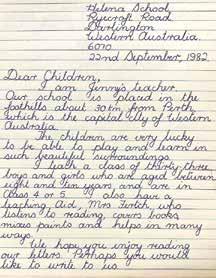 Helena School,
Ryecroft Road
Darlington
Western Australia.
6070
22nd September, 1982
Dear Children,
I am Jenny's teacher.
Our school is placed in the
foothills about 30km from Perth
which is the capital city of Western
Australia.
The children are very lucky
to be able to play and learn in
such beautiful surroundings.
I teach a class of thirty-three
boys and girls who are aged between
eight and ten years and are in
Class 4 or 5. I also have a
teaching Aid, Mrs who
listens to reading, covers books
mixes paints and helps in many
ways.
We hope you enjoy reading
our letters. Perhaps you would
like to write to us